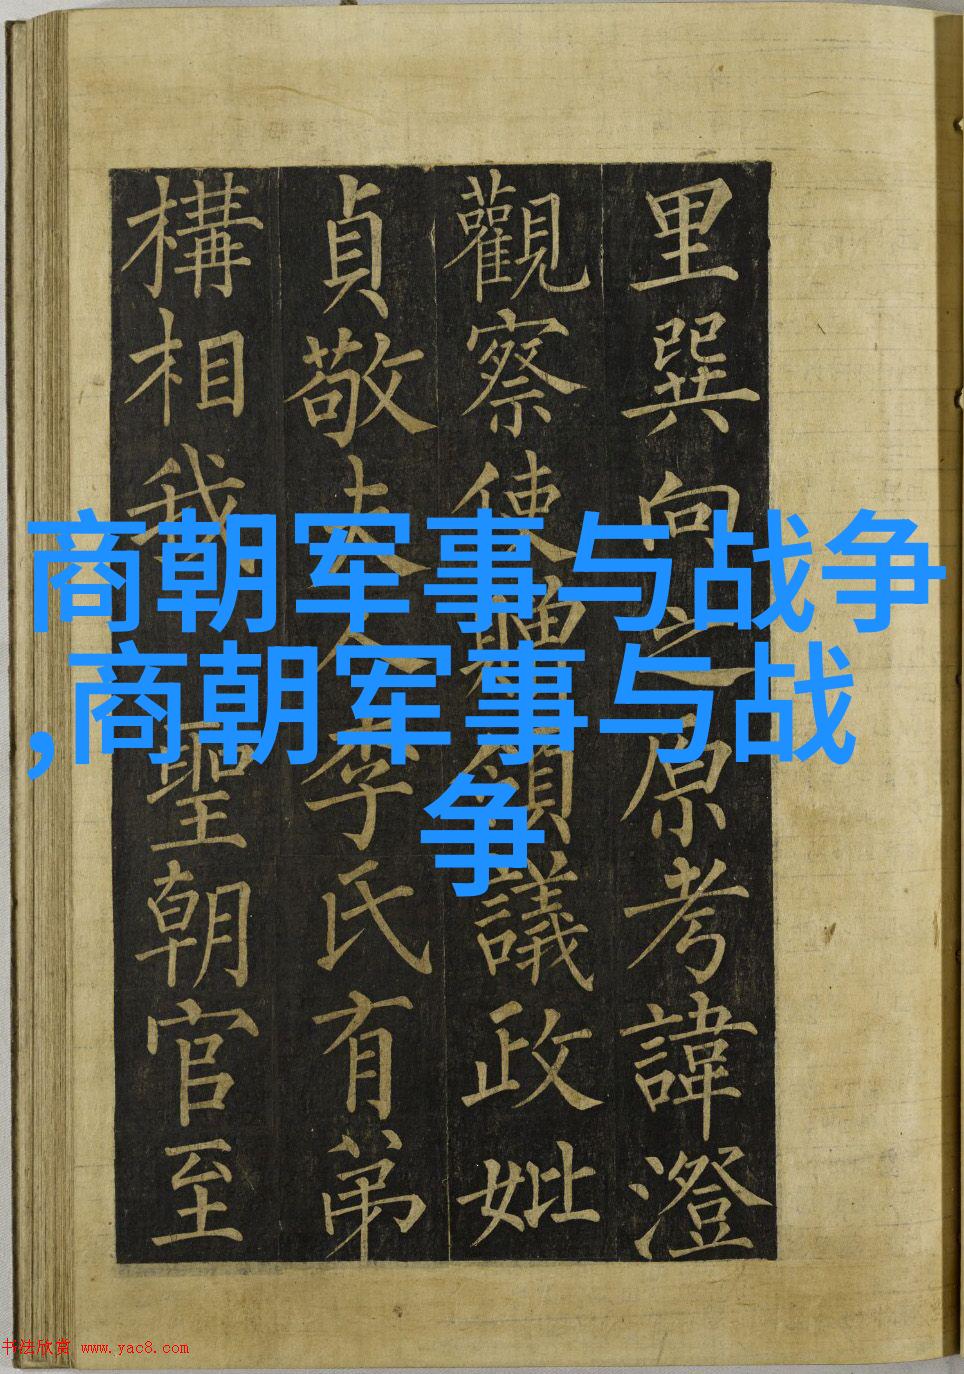 商朝军事与战争
,商朝军事与战
争
里巽向之原考諱澄
觀察使贈領議政妣
貞敬夫人李氏有弟
構相我 聖朝官至
书法欣赏 www.yac8.com